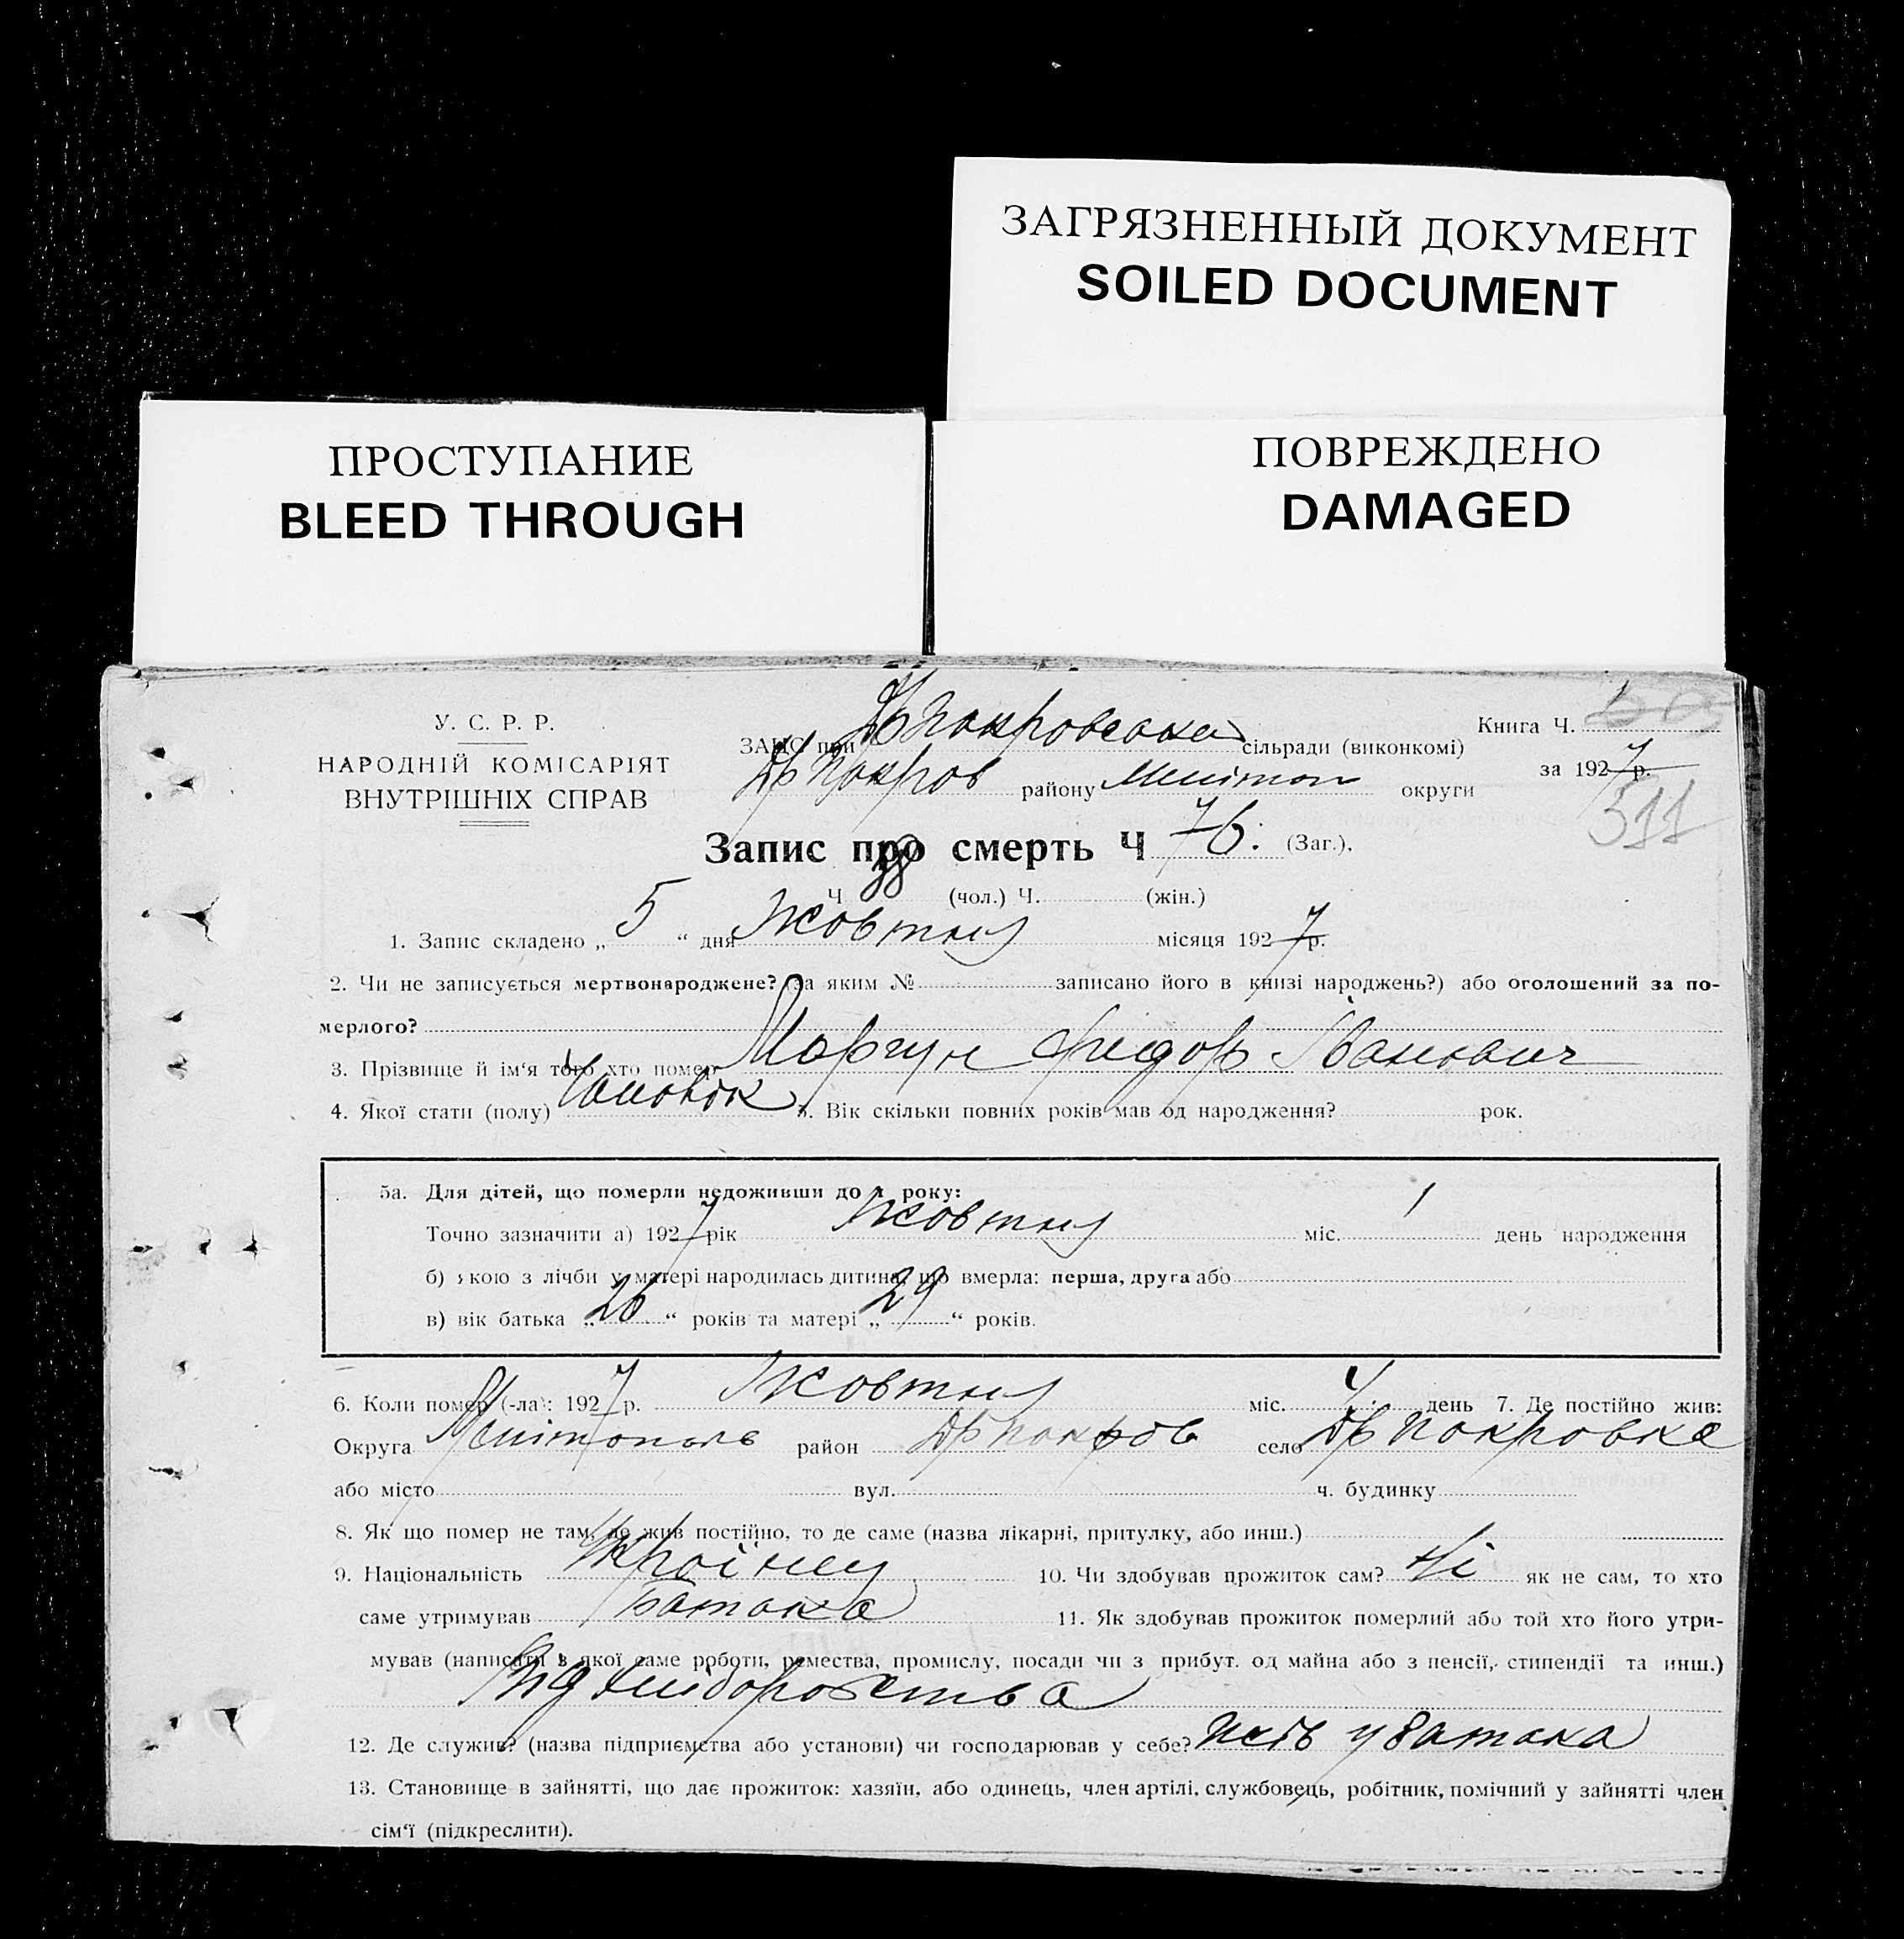 ЗАГРЯЗНЕННЫЙ ДОКУМЕНТ
SOILED DOCUMENT
ПРОСТУПАНИЕ
BLEED THROUGH
ПОВРЕЖДЕНО
DAMAGED
У. С. Р. Р.
НАРОДНІЙ КОМІСАРІЯТ
ВНУТРІШНІХ СПРАВ
ЗАГС при сільради (виконкомі)
Др Покров району Мелітоп округи
Книга Ч.
за 1927 р.
311
Запис про смерть Ч 76. (Заг.),
Ч 38 (чол.) Ч. (жін.)
1. Запис складено „ 5 “ дня Жовтня місяця 1927 р.
2. Чи не записується мертвонароджене? (за яким № записано його в книзі народжень?) або оголошений за по-
мерлого?
3. Прізвище й ім‘я того хто помер Моргун Федор Іванович
4. Якої стати (полу) Чоловік 5. Вік скільки повних років мав од народження? рок.
5а. Для дітей, що померли недоживши до 1 року:
Точно зазначити а) 1927 рік Жовтня міс. 1 день народження
б) якою з лічби у матері народилась дитина, що вмерла: перша, друга або
в) вік батька „ 26 “ років та матері „ 29 “ років.
6. Коли помер (-ла): 1927 р. Жовтня міс. 4 день 7. Де постійно жив:
Округа Мелітополь район Др Покров село Др Покровка
або місто вул. ч. будинку
8. Як що помер не там, де жив постійно, то де саме (назва лікарні, притулку, або инш.)
9. Національність 10. Чи здобував прожиток сам? Ні як не сам, то хто
саме утримував Батька 11. Як здобував прожиток померлий або той хто його утри-
мував (написати з якої саме роботи, ремества, промислу, посади чи з прибут. од майна або з пенсії, стипендії та инш.)
12. Де служив? (назва підприємтва або установи) чи господарював у себе? у батька
13. Становище в зайнятті, що дає прожиток: хазяїн, або одинець, член артілі, службовець, робітник, помічний у зайнятті член
сім‘ї (підкреслити).